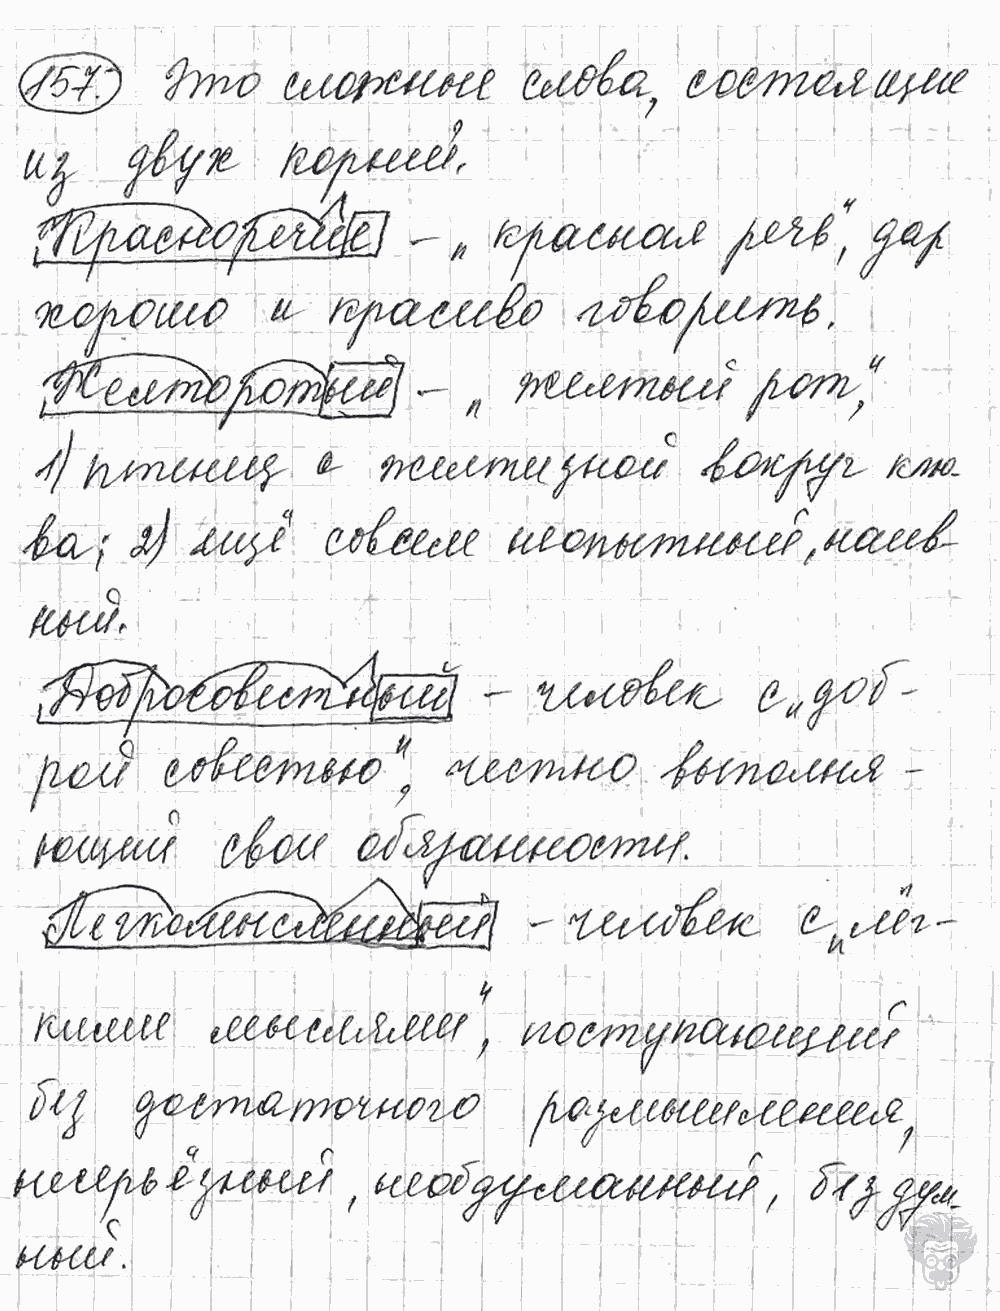 157. Это сложные слова, состоящие
из двух корней.
Красноречие – „красная речь“, дар
хорошо и красиво говорить.
Желторотый – „желтый рот“,
1) птенец с желтизной вокруг клю-
ва; 2) ещё совсем неопытный, наив-
ный.
Добросовестный – человек с „доб-
рой совестью“, честно выполня-
ющий свои обязанности.
Легкомысленный – человек с „лёг-
кими мыслями“, поступающий
без достаточного размышления,
несерьёзный, необдуманный, бездум-
ный.